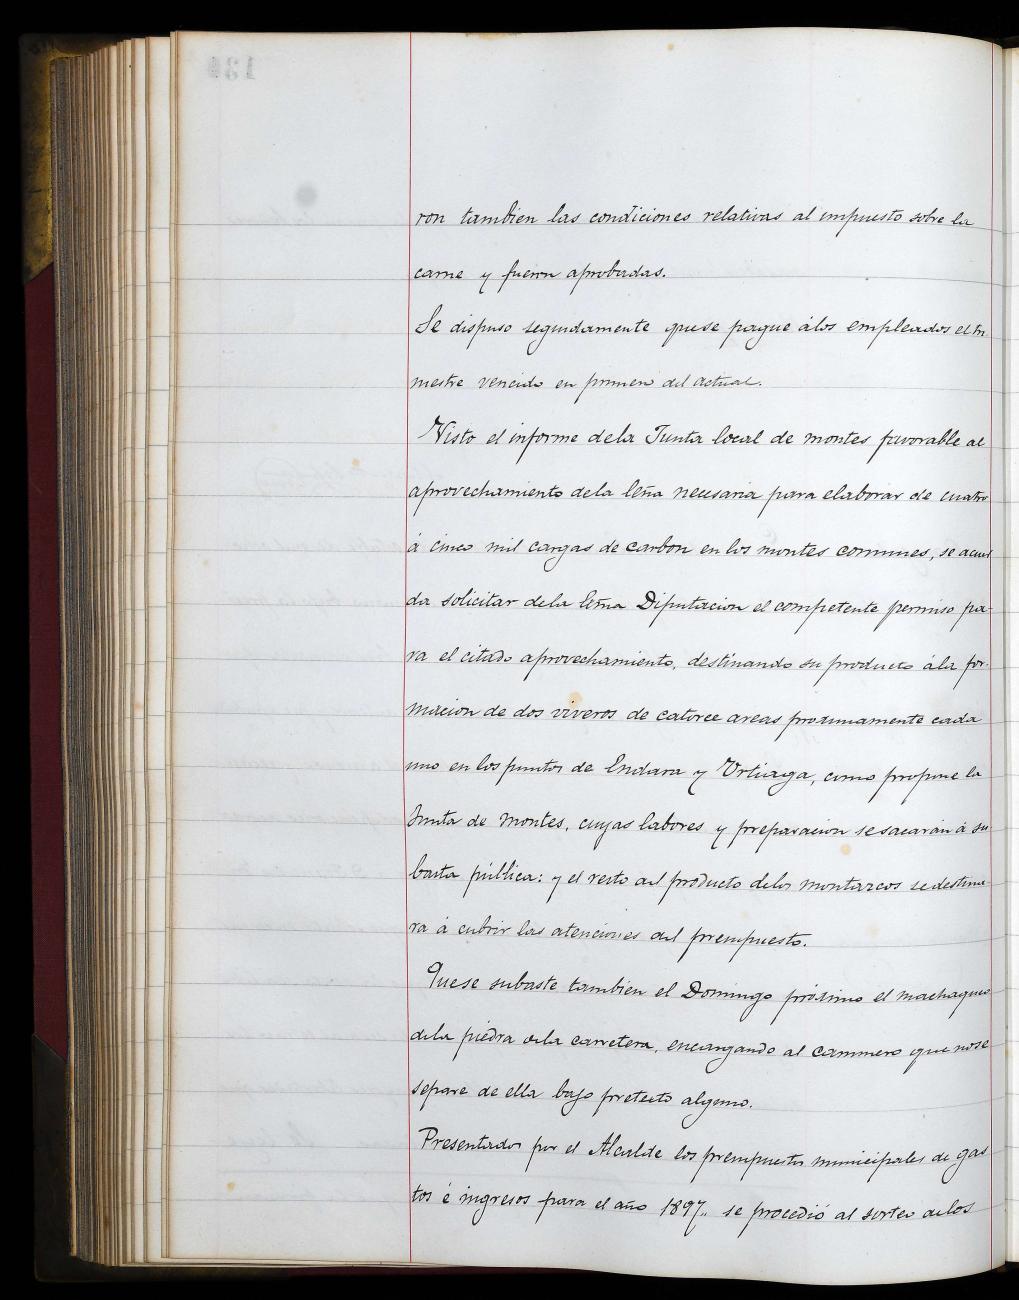 ron tambien las condiciones relativas al impuesto sobre la
carne y fueron aprobadas.
Se dispuso seguidamente que se pague álos empleados el tri
mestre vencido en primero del actual.
Visto el informe dela Junta local de montes favorable al
aprovechamiento dela leña necesaria para elaborar de cuatro
á cinco mil cargas de carbon en los montes comunes, se acuer
da solicitar dela Exma Diputacion el competente permiso pa-
ra el citado aprovechamiento, destinando su producto ála for-
macion de dos viveros de catorce areas proximamente cada
uno en los puntos de Endara y Urtiaga, como propone la
Junta de montes, cuyas labores y preparacion se sacarán á su
basta pública: y el resto del producto delos montazcos se destina-
ra á cubrir las atenciones del presupuesto.
Que se subaste tambien el Domingo próximo el machaqueo
dela piedra dela carretera, encargando al caminero que no se
separe de ella bajo pretexto alguno.
Presentados por el Alcalde los presupuestos municipales de gas
tos é ingresos para el año 1897,, se procedió al sorteo delos